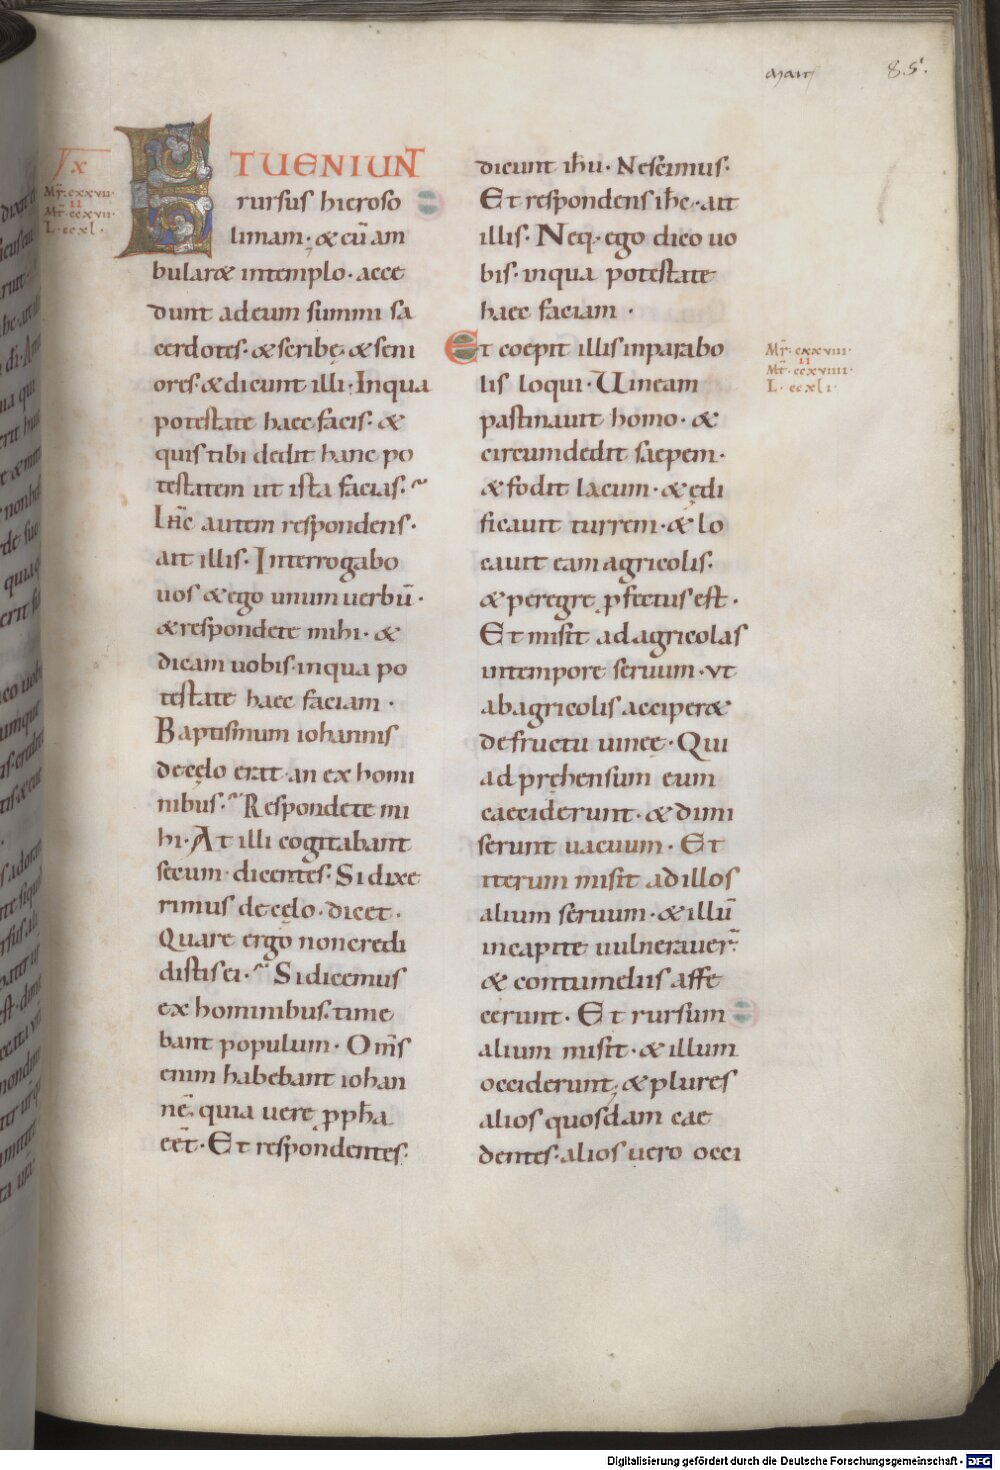 85.
X
Mr. cxxvii.
II
Mt. ccxvii.
L. ccxl.
ETUENIUNT
rursus hieroso
limam. & cū am
bular& intemplo. acce
dunt adeum summi sa
cerdotes. & scribę. & seni
ores. & dicunt illi. Inqua
potestate haec facis. &
quis tibi dedit hanc po
testatem ut ista facias.
Ihc autem respondens.
ait illis. Interrogabo
uos & ego unum uerbū.
& respondete mihi. &
dicam uobis. inqua po
testate haec faciam.
Baptismum iohannis
decęlo erat. an ex homi
nibus. Respondete mi
hi. At illi cogitabant
secum. dicentes. Si dixe
rimus decęlo. dicet.
Quare ergo noncredi
distis ei. Si dicemus
ex hominibus. time
bant populum. Oms
enim habebant iohan
nē. quia uere ppha
eet. Et respondentes.
dicunt ihu. Nescimus.
Et respondens ihc. ait
illis. Neq. ego dico uo
bis. inqua potestate
haec faciam.
Et coepit illis inparabo
lis loqui. Uineam
pastinauit homo. &
circumdedit saepem.
& fodit lacum. & ędi
ficauit turrem. & lo
cauit eam agricolis.
& peregre pfectus est.
Et misit ad agricolas
intempore seruum. vt
abagricolis acciper&
de fructu uineę. Qui
adprehensum eum
caeciderunt. & dimi
serunt uacuum. Et
iterum misit ad illos
alium seruum. & illū
incapite uulnerauer.
& contumeliis affe
cerunt. Et rursum
alium misit. & illum
occiderunt. & plures
alios quosdam cae
dentes. alios uero occi
Mr. cxxviii.
II
Mt. ccxviiii.
L. ccxli.
Digitalisierung gefördert durch die Deutsche Forschungsgemeinschaft - DFG